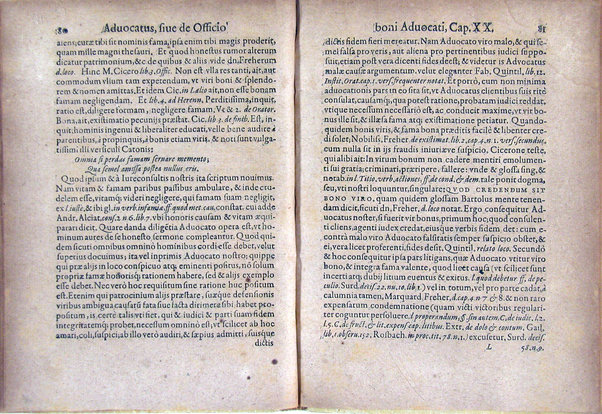 80 Advocatus, siue de Officio
aiens, curæ tibi sit nominis fama, ipsa enim tibi magis proderit,
quam mille magni thesauri. Et quod honestus rumor alterum
dicitur patrimonium, & c. de quibus & aliis vide dn. Freherum
d. loco. Hinc M. Cicero lib. 3. Offic. Non est vlla res tanti, aut
commodum vllum tam expetendum, vt viri boni & splendo-
rem & nomen amittas, Et idem Cic. in Lælio ait, non esse bonam
famam negligendam. Et lib. 4. ad Herenn. Perditissima, inquit,
ratio est, diligere formam, negligere famam, Vc & 2. de Orator.
Bona, ait, existimatio pecuniis præstat. Cic. lib. 3. de finib. Est, in-
quit, hominis ingenui & liberaliter educati, velle bene audire à
parentibus, à propinquis, à bonis etiam viris, & noti sunt vulga-
tissimi illi versiculi Catonis:
Omnia si perdas famam seruare memento;
Qua semel amissa postea nullus eris.
Quod ipsum & à Iurecconsultis nostris ita scriptum nouimus.
Nam vitam & famam paribus passibus ambulare, & inde cru-
delem esse, vitamq; videri negligere, qui famam suam negligit,
ex l. iustæ, & ibi gl. in verb. infamia. ff. quod met. cau. constat. addo
Andr. Alciat. cons. 2 n 6. lib. 7. vbi honoris causam & vitæ æqui-
parari dicit. Quare danda diligentia Aduocato opera est, vt ho-
minum aures de se honesto sermone compleantur. Quod qui-
dem si cuti omnibus omninò hominibus cordi esse debet, velut
superius docuimus; ita vel inprimis Aduocato nostro; quippe-
qui præ aliis in loco conspicuo atq; eminenti positus, nō solum
propriæ famæ hostijsq; rationem habere, sed & aliis exemplo
esse debet. Nec verò hoc requisitum sine ratione huc positum
est. Etenim qui patrocinium aliis præstare, suæque defensionis
viribus ambigua causarū fata suæ lacta dirimenti sibi habet pro-
positum, is certè talis vt iste fiet, qui & iudici & parti suam fidem
integritatemq; probet, omninò est vt, scilicet ab hoc
amari, coli, suspici, ab illo verò audiri, & sæpius admitti, suisque
dictis
boni Aduocati, Cap. XX. 81
dictis fidem fieri mereatur. Nam Aduocato viro malo, & qui se-
mel falsa proponit, vix aliàs fides haberi solet; dum in suspicio-
nem etiam post vera dicenti fides desit; & videtur is Aduocatus
malæ causæ argumentum. velut eleganter Fab. Quintil. lib. 12.
Instit. orat. cap. 1. vers. frequenter notat. Et porrò, cum non minima
aduocationis pars in eo consistat, vt Aduocatus clientibus suis ritè
consulat, caussamq; qua potest ratione, probatam iudici reddat,
vtique necessum necessariò est, ac conducit maxime, vt vir bo-
nus ille sit, & illæsa fama atq; existimatione potiatur. Quando-
quidem bonis viris, & fama bona præditis facilè & libenter cre-
di solet; Nobiliss. Freher. de existimat. lib. 2. cap. 4. n. 1. vers. secundus,
cum nulla sit in ijs fraudis iniuriæue suspicio, Cicerone teste,
qui alibi ait: In virum bonum non cadere mentiri emolumen-
ti sui gratia; criminari, præripere, fallere: vnde & glossa sing. &
notabil. in l. Titio. verb. actiones. ff. de cond. & dem. tale ponit dogma,
seu, vti nostri loquuntur, singulare: QVOD CREDENDVM SIT
BONO VIRO, quam quidem glossam Bartolus mente tenen-
dam dicit, sicuti dn. Freher. d. loco notat. Ergo consequitur Ad-
uocatus noster, si fuerit vir bonus, primum hoc; quod consulen-
ti cliens, agenti iudex credat, eiusque verbis fidem det: cum è
contrà malo viro Aduocato falsitatis semper suspicio obstet, &
ei, vera licet proferenti, fides desit, Quintil. relato loco. Secundò
& hoc consequitur ipsa pars litigans. quæ Aduocato vtitur viro
bono, & integra fama valente, quod licet causa (vt scilicet sunt
incerti atq; dubij litium euentus & exitus. l. quod debetur ff. de pe-
culio. Surd. decis. 22. nu. 10. lib. 1.) vel in totum, vel pro parte cadat, à
calumnia tamen, Marquard. Freher. d. cap. 4 n 7 & 8. & non raro
expensarum condemnatione (quam victi victoribus regulari-
ter coguntur persoluere. l. properandum, §. sin autem. C. de iudic. l. 2.
l. 5. C. de fruct. & lit. expens. cap. litibus. Extr. de dolo & contum. Gail.
lib. 1. obseru. 152. Rosbach. in proc. tit. 78. n. 1.) excusetur, Surd. decis.
L 58. n. 9.